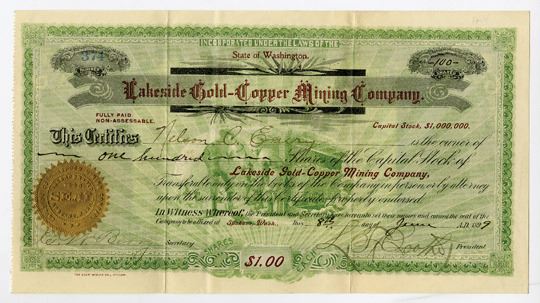 INCORPORATED UNDER THE LAWS OF THE
State of Washington.
374
-100-
Lakeside Gold-Copper Mining Company.
FULLY PAID
NON-ASSESSABLE.
Capital Stock, $1,000,000.
This Certifies Nelson C. is the owner of
one hundred Shares of the Capital Stock of
Lakeside Gold-Copper Mining Company,
Transferable only on the books of the Company in person or by attorney
upon the surrender of this Certificate properly endorsed.
In Witness Whereof, the President and Secretary have hereunto set their names and caused the seal of the
Company to be affixed at Spokane, Wash., this 8th day of June A.D. 1899
Secretary
President
SHARES
$1.00